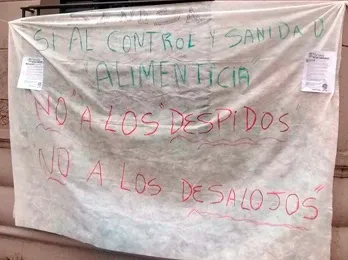 SI AL CONTROL Y SANIDAD
ALIMENTICIA
"NO" A LOS "DESPIDOS
"NO" A LOS DESALOJOS"